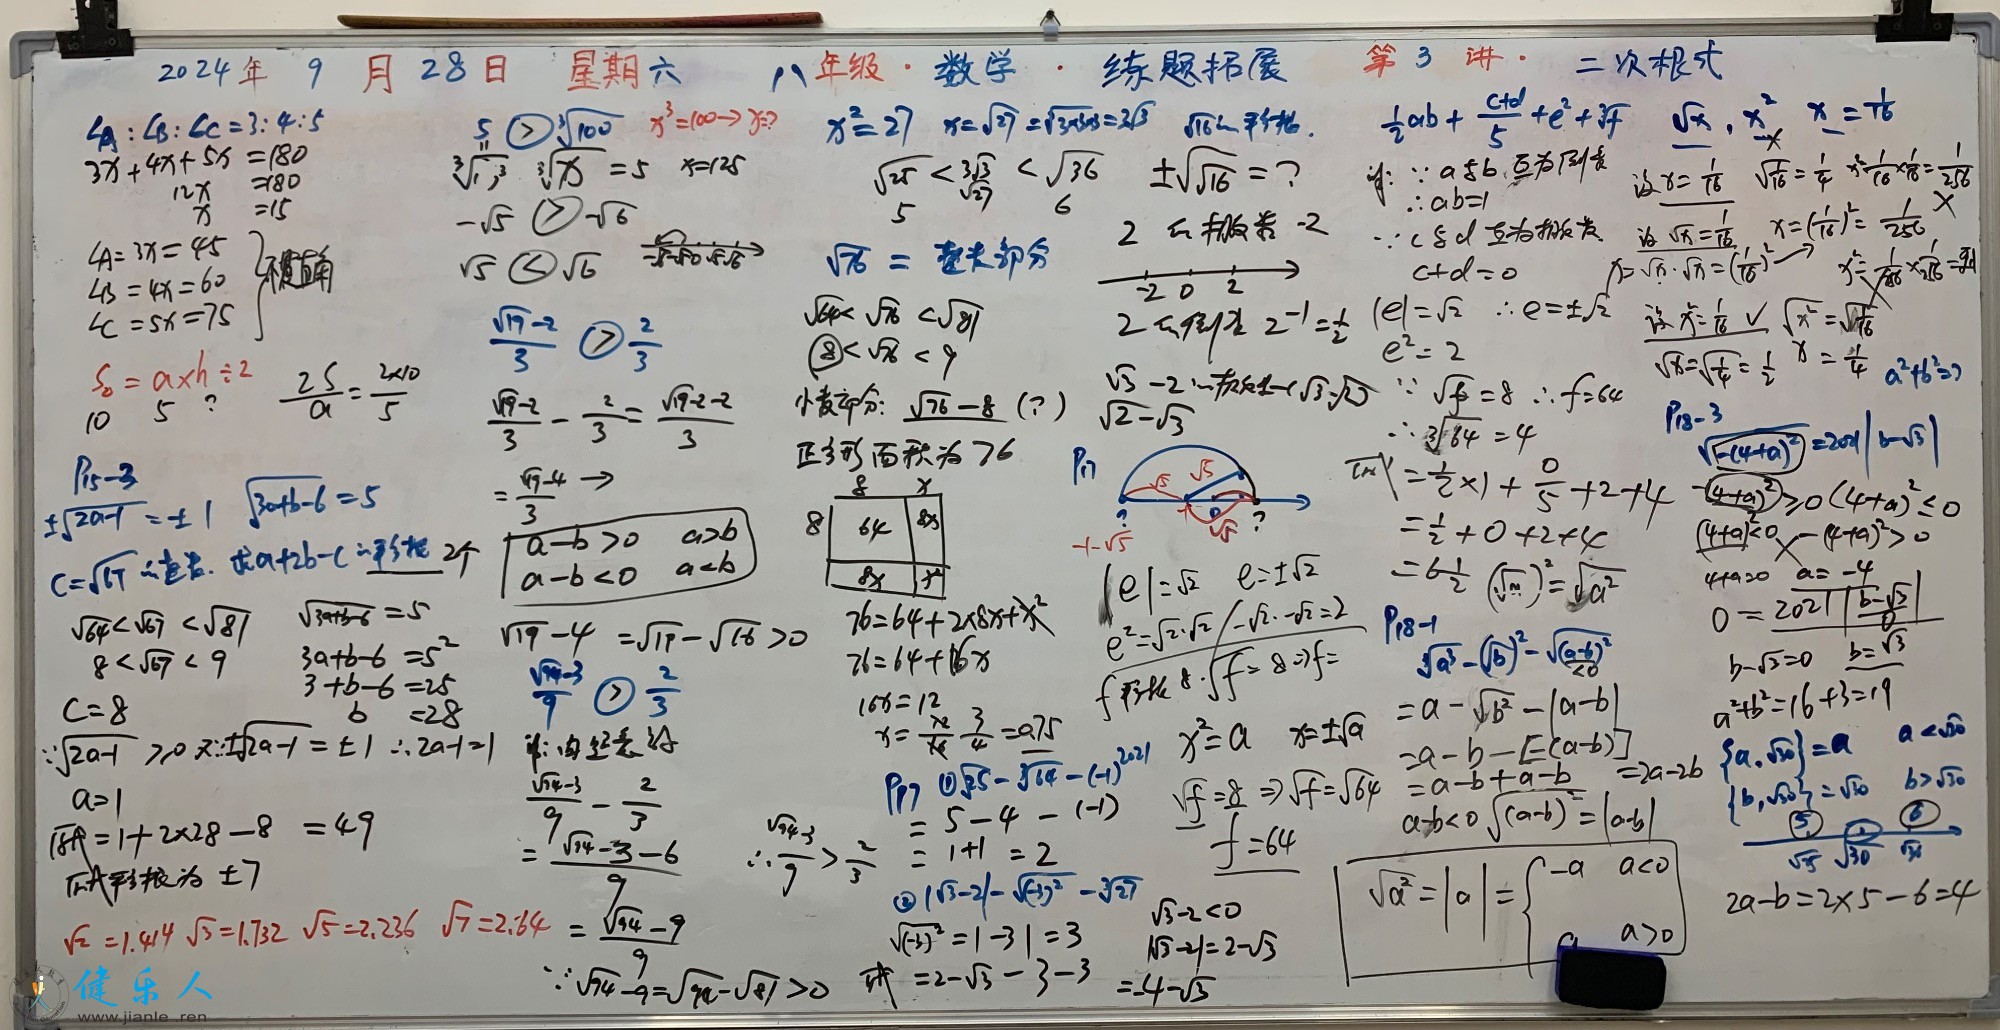 2024年 9 月 28日 星期六 八年级·数学·练题拓展 第3讲· 二次根式
∠A:∠B:∠C=3:4:5
3x+4x+5x=180
12x=180
x=15
∠A=3x=45
∠B=4x=60
∠C=5x=75
S=a×h÷2
10 5 ?
2S/a=2×10/5
P15-3
±√(2a-1)=±1 √(3a+b-6)=5
C=√67 的整数. 求a+2b-c的平方根 2个
√64<√67<√81
8<√67<9
C=8
√(3a+b-6)=5
3a+b-6=5²
3+b-6=25
b=28
∵√(2a-1)≥0 又∵±√(2a-1)=±1 ∴2a-1=1
a=1
原式=1+2×28-8=49
原式平方根为±7
√2=1.414 √3=1.732 √5=2.236 √7=2.64
5>∛100 x³=100→x=?
∛x=5 x=125
-√5>-√6
√5<√6
(√19-2)/3>2/3
(√19-2)/3-2/3=(√19-2-2)/3
=(√19-4)/3→
a-b>0 a>b
a-b<0 a<b
√19-4=√19-√16>0
(√94-3)/9>2/3
解:由题意得
(√94-3)/9-2/3
=(√94-3-6)/9
=(√94-9)/9
∵√94-9=√94-√81>0
∴(√94-3)/9>2/3
x²=27 x=√27=√(3×3×3)=3√3
√25<3√3<√36
5 √27 6
√76=整数部分
√64<√76<√81
8<√76<9
小数部分:√76-8(?)
正方形面积为76
8 x
8 64 8x
8x x²
76=64+2×8x+x²
76=64+16x
16x=12
x=12/16 3/4=0.75
P17 ①√25-∛64-(-1)^2021
=5-4-(-1)
=1+1=2
②|√3-2|-√(-3)²-∛27
√(-3)²=|-3|=3
原式=2-√3-3-3
=-4-√3
√3-2<0
|√3-2|=2-√3
√16的平方根.
±√√16=?
2的相反数-2
-2 0 2
2的倒数 2⁻¹=1/2
√2-√3
P17
√5 √5
? -1 0 ?
-1-√5 √5
|e|=√2 e=±√2
e²=√2·√2/-√2·-√2=2
f平方根8·√f=8⇒f=
x²=a x=±√a
√f=8⇒√f=√64
f=64
1/2ab+(c+d)/5+e²+∛f
解:∵a与b互为倒数
∴ab=1
∵c与d互为相反数
c+d=0
|e|=√2 ∴e=±√2
e²=2
∵√f=8 ∴f=64
∴∛64=4
原式=1/2×1+0/5+2+4
=1/2+0+2+4
=6 1/2
P18-1
∛a³-(√b)²-√(a-b)²
<0
=a-√b²-|a-b|
=a-b-[-(a-b)]
=a-b+a-b=2a-2b
a-b<0 √(a-b)²=|a-b|
√a²=|a|={-a a<0
a a>0
√x, x² x=1/16
设x=1/16 √(1/16)=1/4 x²=1/16×1/16=1/256
设√x=1/16 x=(1/16)²=1/256
x=√x·√x=(1/16)²
设x²=1/16 ✓ √x²=√(1/16)
√x=√(1/4)=1/2 x=1/4
a²+b²=?
P18-3
√(-(4+a)²)=2021|b-√3|
-(4+a)²≥0 (4+a)²≤0
(4+a)²<0 × -(4+a)²>0
4+a=0 a=-4
0=2021|b-√3|
0
b-√3=0 b=√3
a²+b²=16+3=19
{a,√30}=a a<√30
{b,√30}=√30 b>√30
5 6
√25 √30 √36
2a-b=2×5-6=4
健乐人
www.jianle.ren